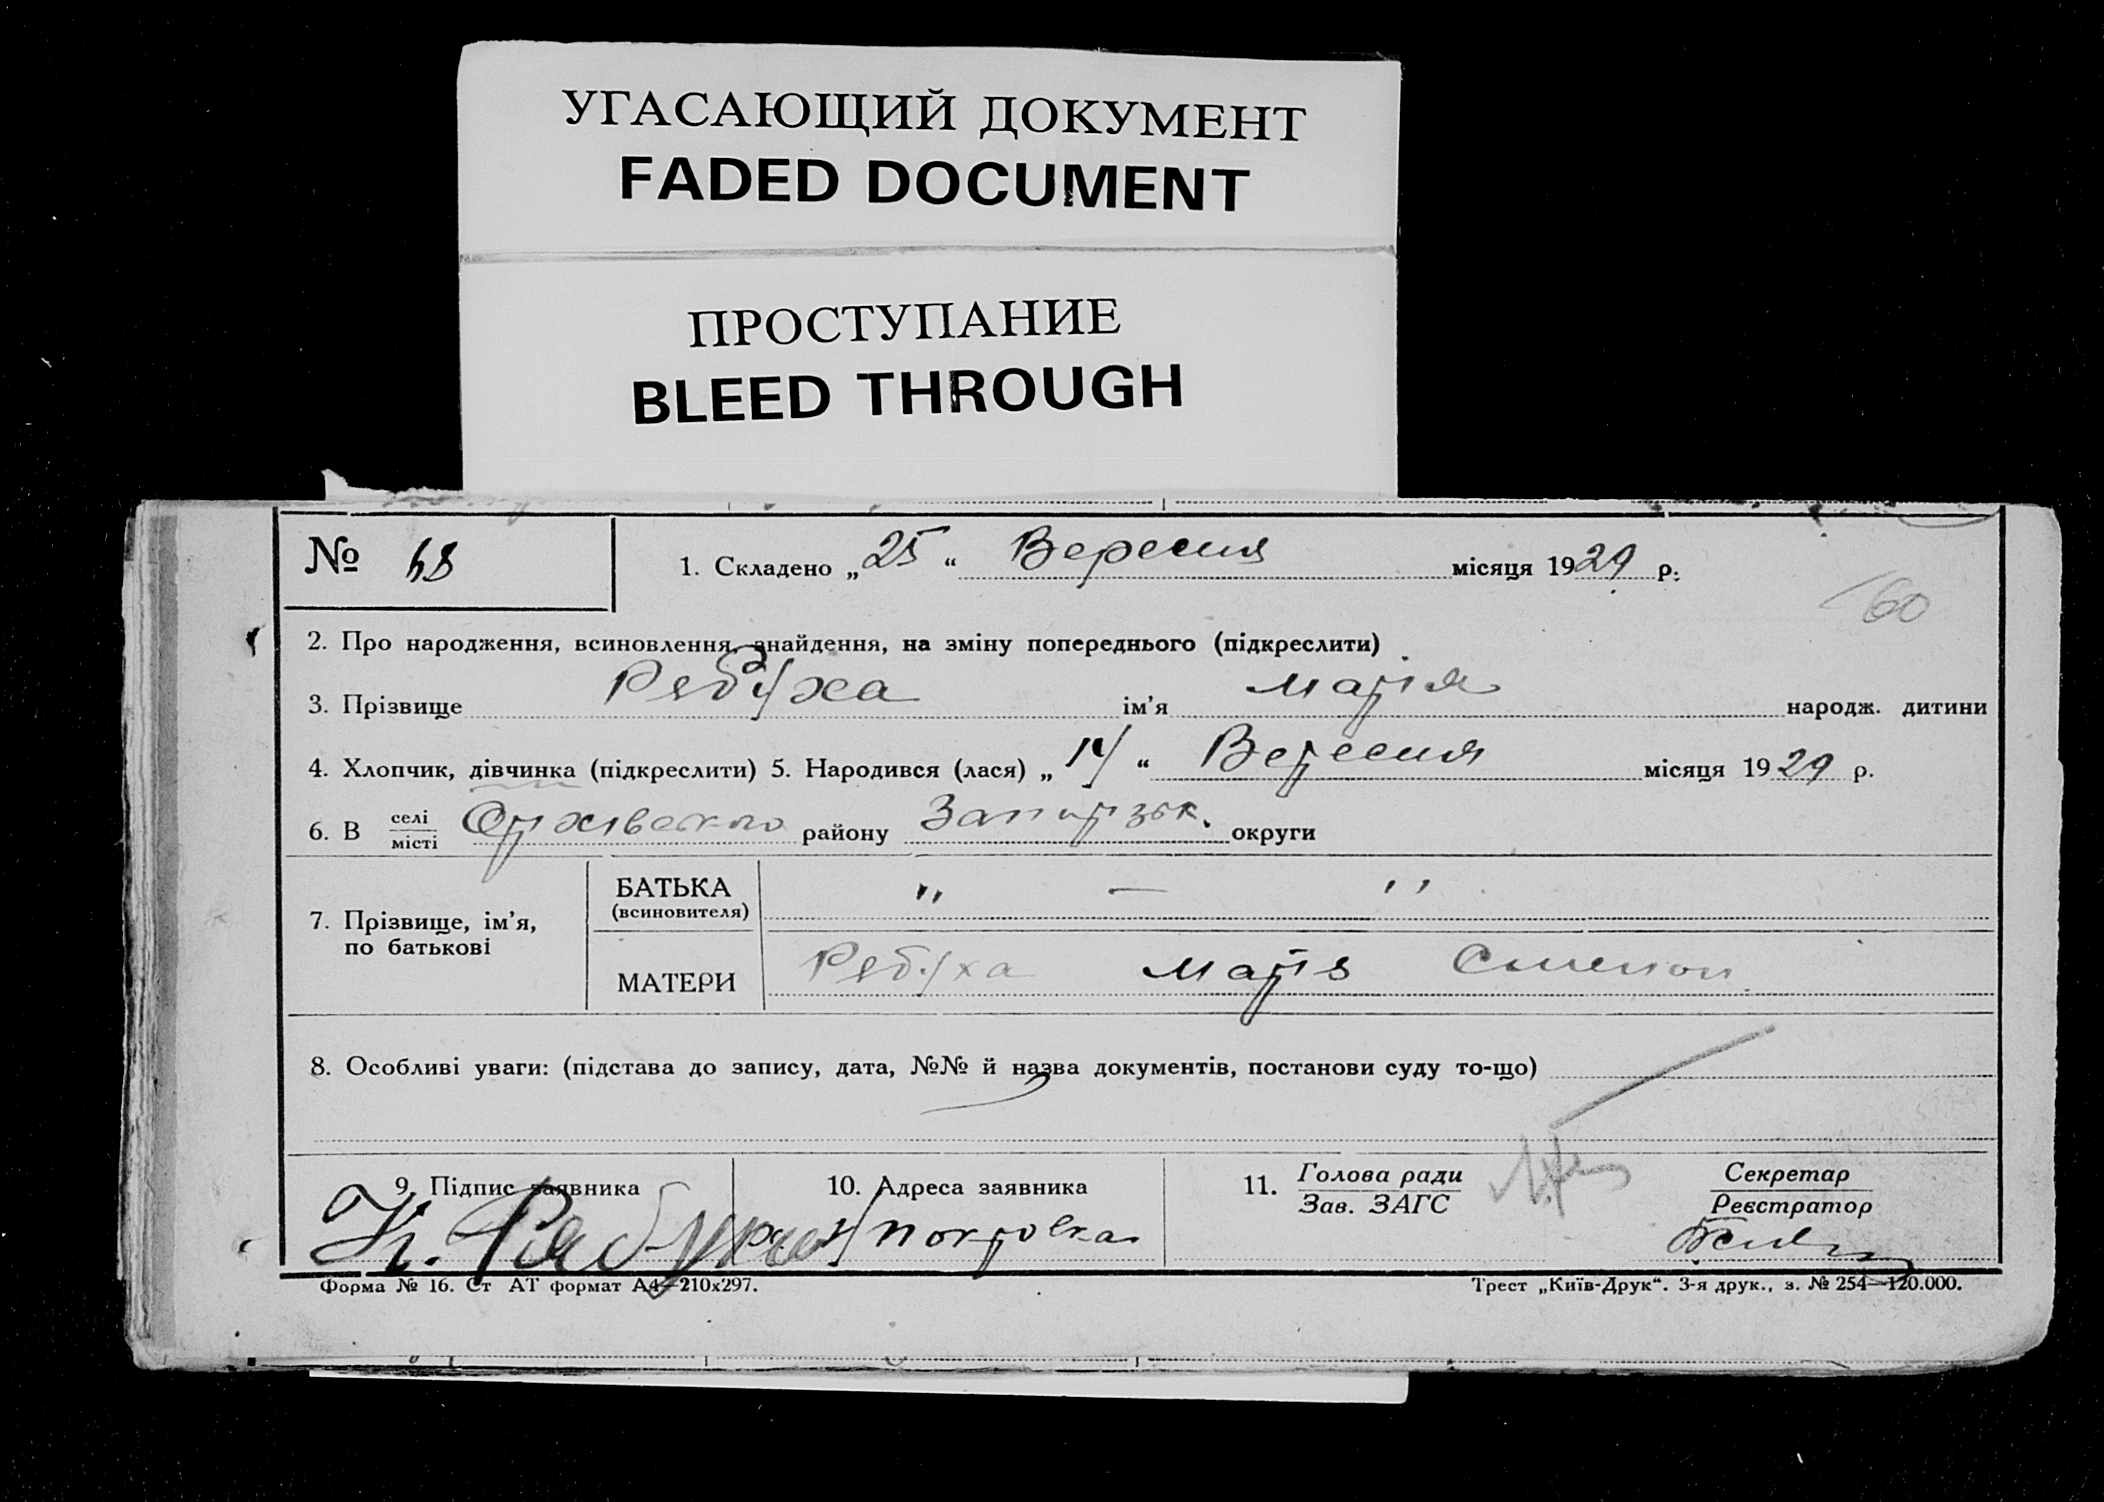 УГАСАЮЩИЙ ДОКУМЕНТ
FADED DOCUMENT
ПРОСТУПАНИЕ
BLEED THROUGH
№ 1. Складено „25“ Вересня місяця 1929 р.
60
2. Про народження, всиновлення, знайдення, на зміну попереднього (підкреслити)
3. Прізвище Рябуха ім’я Марія народж. дитини
4. Хлопчик, дівчинка (підкреслити) 5. Народився (лася) „14“ Вересня місяця 1929 р.
6. В селі місті Оріхівського району Запорізьк. округи
7. Прізвище, ім’я, по батькові
БАТЬКА (всиновителя) „ — “
МАТЕРИ Рябуха Марія
8. Особливі уваги: (підстава до запису, дата, №№ й назва документів, постанови суду то-що)
9. Підпис заявника 10. Адреса заявника 11. Голова ради Зав. ЗАГС Секретар Реєстратор
Рябуха покровка
Форма № 16. Ст АТ формат А4—210х297. Трест „Київ-Друк“. 3-я друк., з. № 254—120.000.